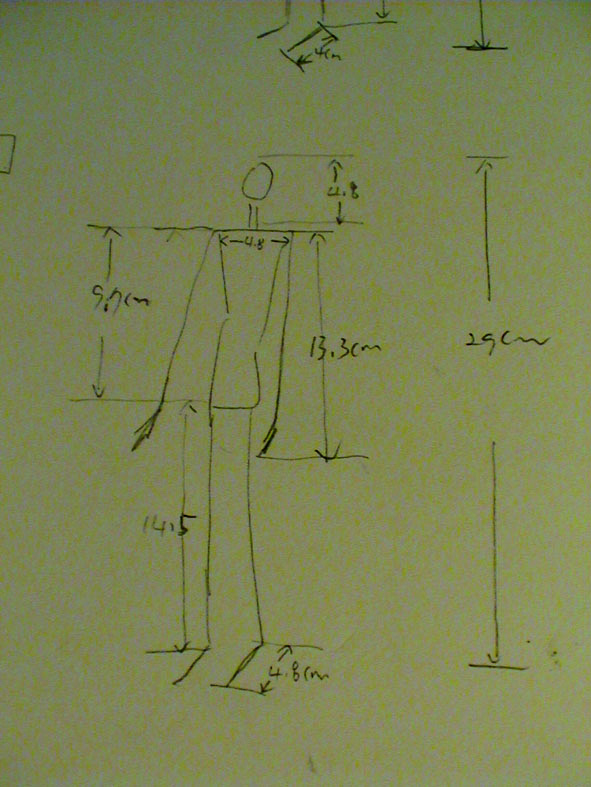 4cm
4.8
4.8
9.7cm
13.3cm
29cm
14.5
4.8cm